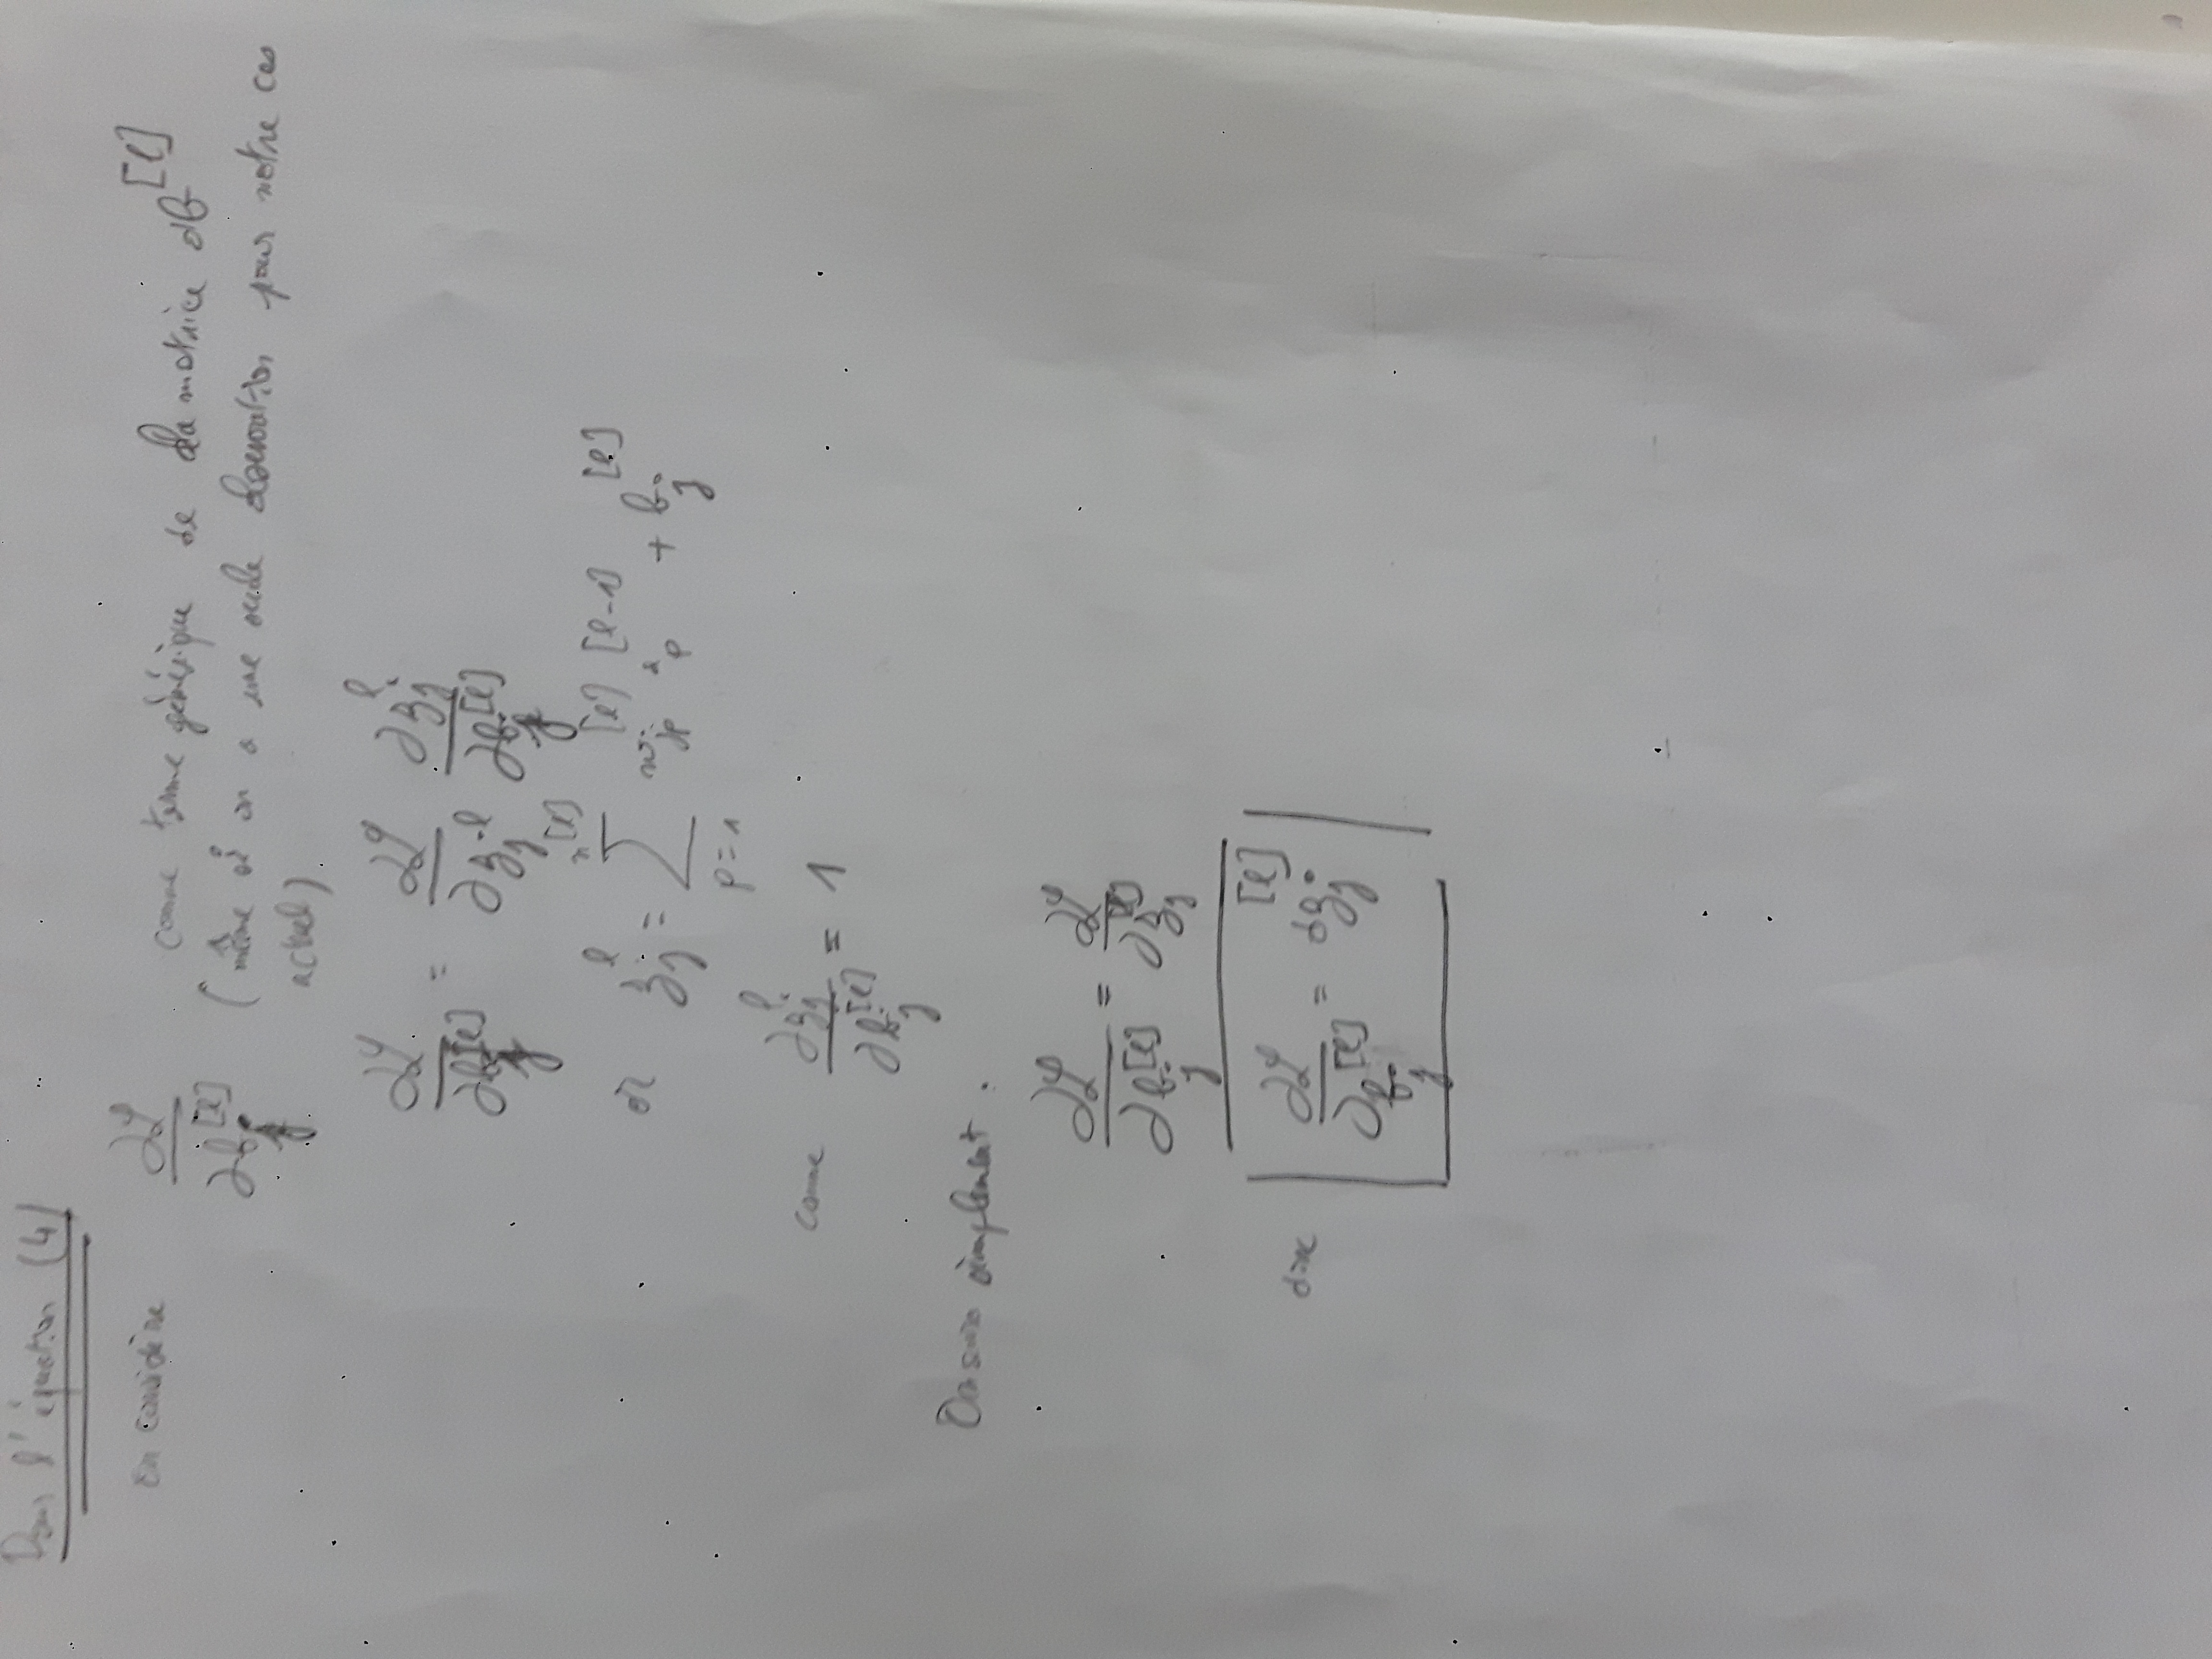 Pour l'équation (4)
on considère ∂L^φ/∂b_j^[l] comme terme générique de la matrice db^[l]
(même si on a une seule observation pour notre cas
actuel)
∂L^φ/∂b_j^[l] = ∂L^φ/∂z_j^l ∂z_j^l/∂b_j^[l]
or z_j^l = Σ_{p=1} w_jp^[l] x_p^[l-1] + b_j^[l]
comme ∂z_j^l/∂b_j^[l] = 1
On simplement :
∂L^φ/∂b_j^[l] = ∂L^φ/∂z_j^[l]
donc ∂L^φ/∂b_j^[l] = dz_j^[l]